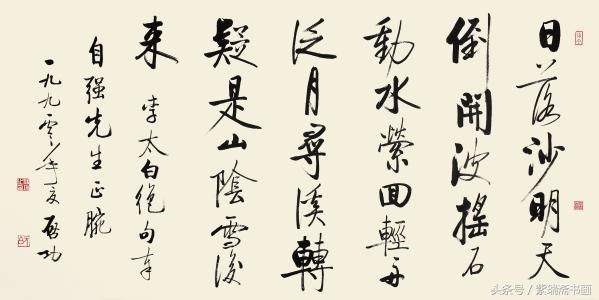 日落沙明天
倒開波搖石
動水縈回輕舟
泛月尋溪轉
疑是山陰雪後
来 李太白絕句奉
自强先生正腕
一九九零年夏 啓功
头条号/紫瑞斋书画